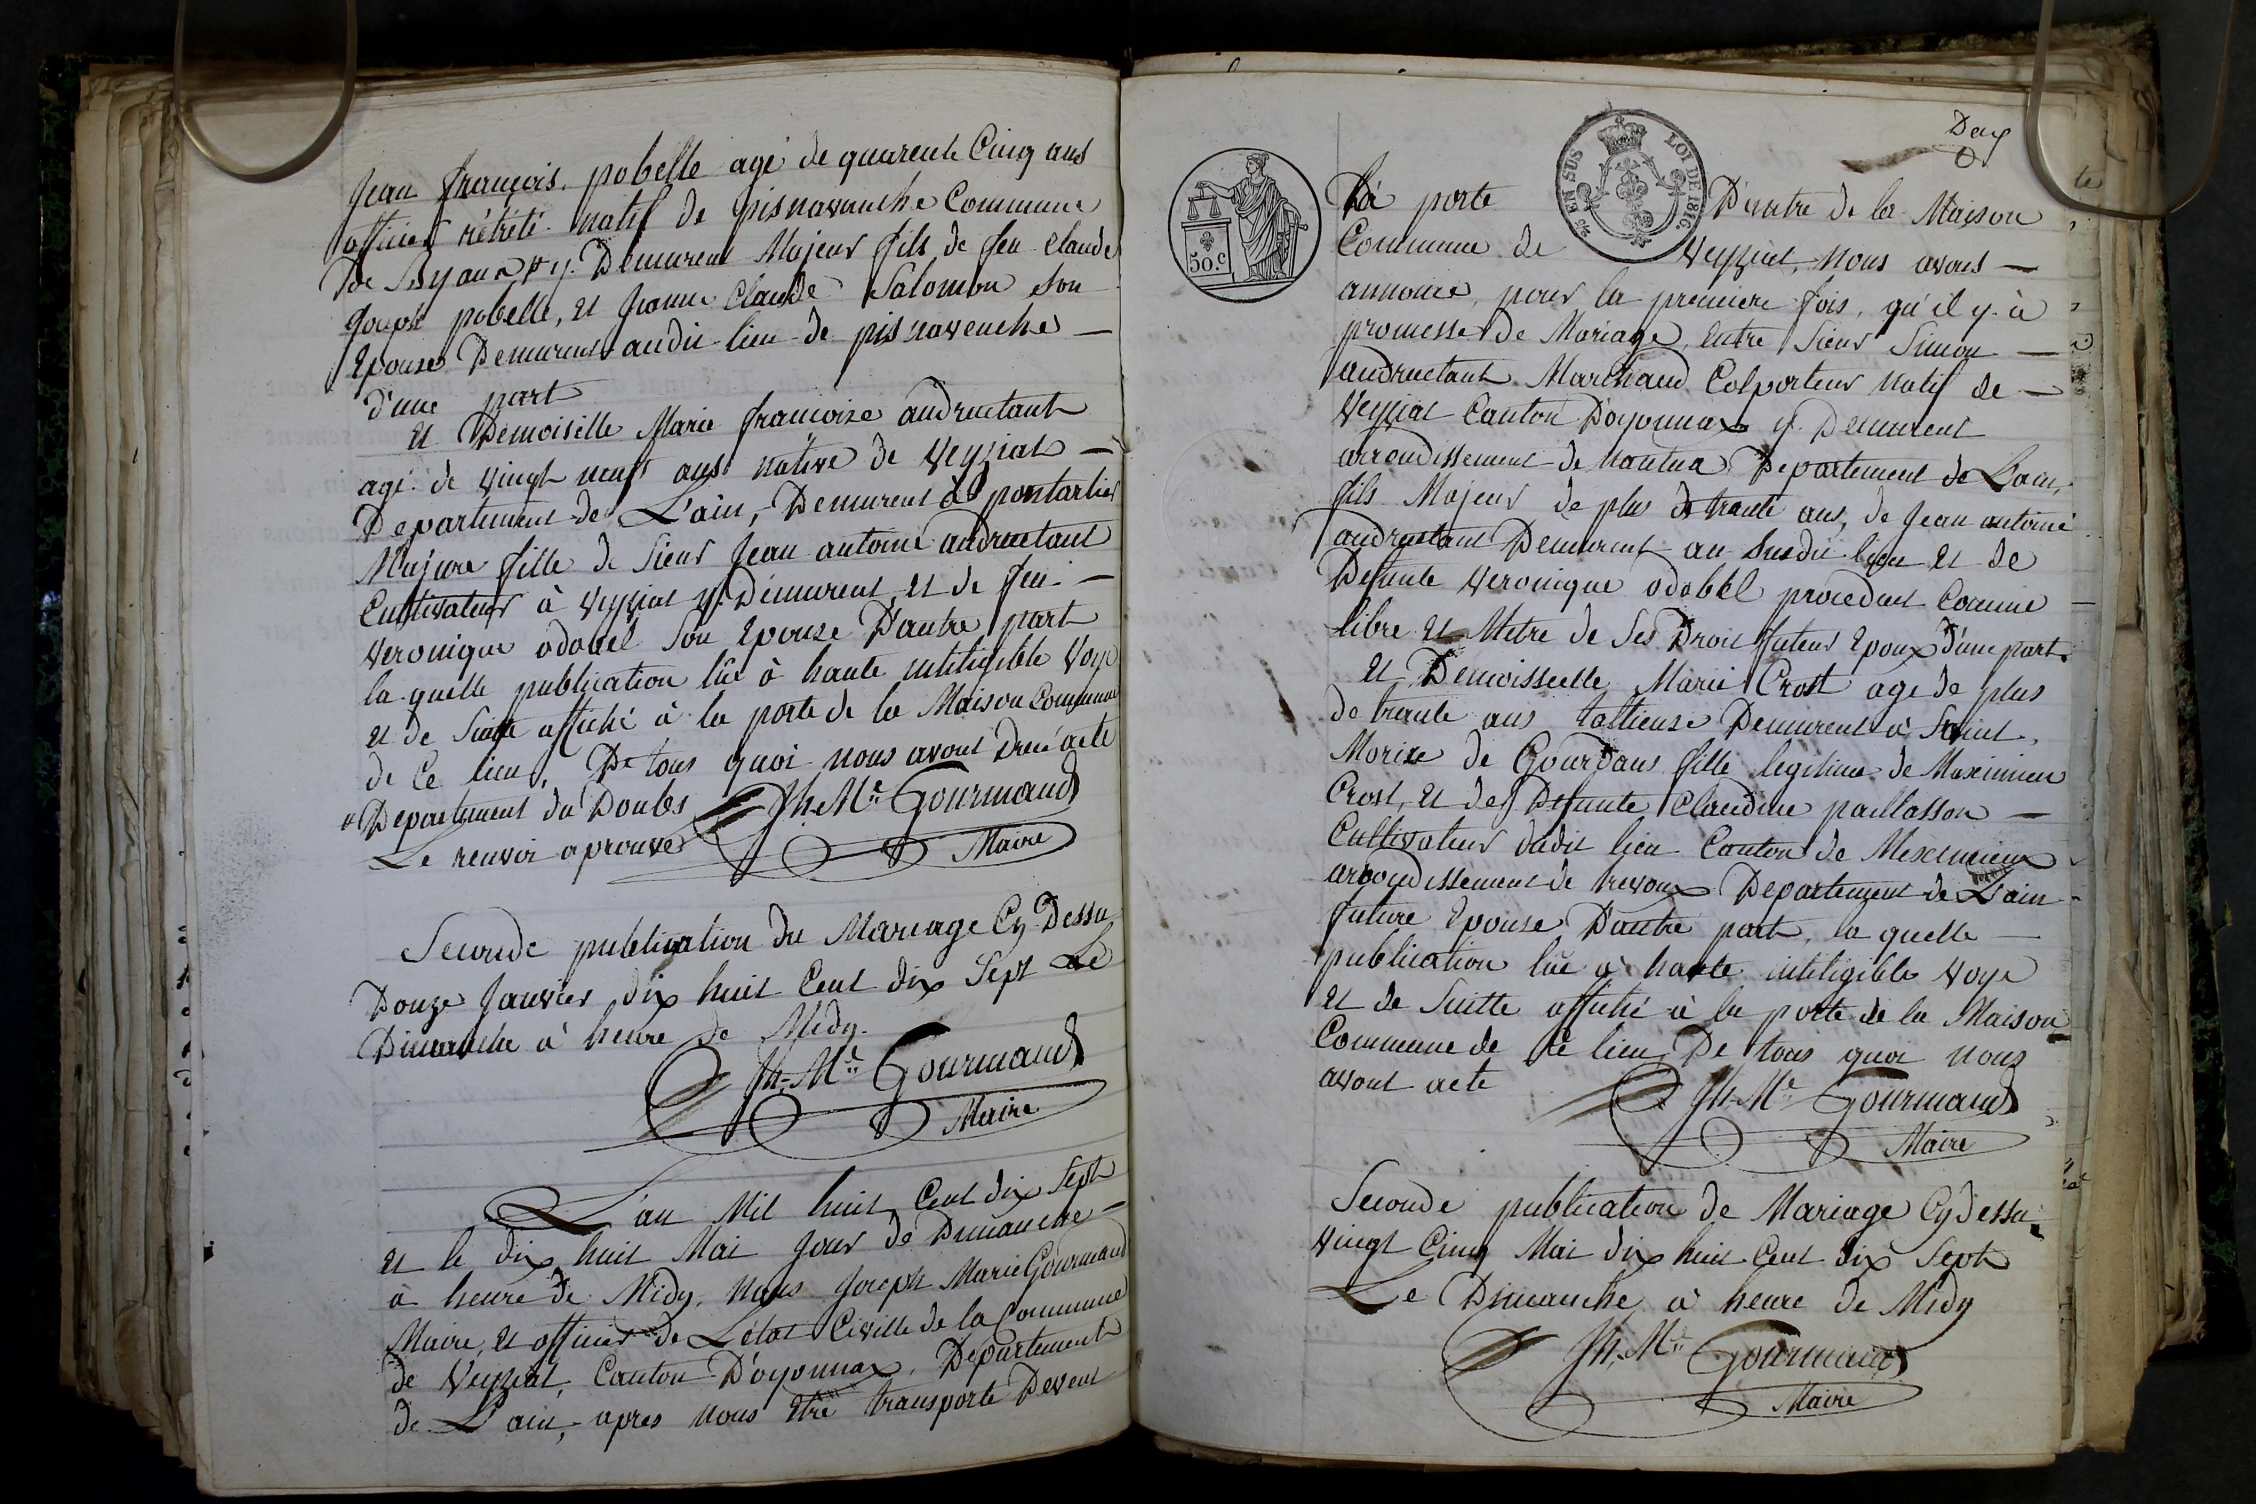 Jean françois. pobelle agé de quarente Cinq ans
officier rétrété. natif de pisnavanche Commune
De y. Demurent Majeur fils de feu Claude
Joseph pobelle, et Jeanne Claude Salomon son
Epouse Demurent audit lieu de pisnavenche —
d'une part
et Demoiselle Marie francoise audructant
agé de vingt neuf ans native de Veyziat —
Departement de L'ain, Demurent à pontarlier
Majeure fille de Sieur Jean antoine audructant
Cultivateur à Veyziat y. Demurent, et de feu. —
Veronique odobel son Epouse D'autre part
la quelle publication lûe à haute intiligible Voye
et de Suitte affiché à la porte de la Maison Commune
de Ce lieu. De tous quoi nous avont Dreé acte
# Departement du Doubs
Le renvoi aprouve
Jh. Mie Gourmand
Maire
Seconde publication du Mariage Cy Dessu
Douze Janvier dix huit Cent dix Sept Le
Dimanche à heure de Midy.
Jh. Mie Gourmand
Maire
L'an Mil huit Cent dix Sept
et le dix huit Mai Jour de Dimanche —
à heure de Midy, Nous Joseph Marie Gourmand
Maire, et officier de L'état Civille de la Commune
de Veyziat, Canton D'oyonnax, Département
de L'ain, apres nous être transporté Devent
50.c
EN SUS LOI DE 1816.
La porte D'entre de la Maison
Commune de Veyziat, Nous avons —
annonce, pour la premiere fois, qu'il y à
promesse de Mariage, entre Sieur Simon —
audructant Marchand Colporteur natif de —
Veyziat Canton D'oyonnax y. Demurent
arrondissement de Nantua Departement de Lain,
fils Majeur de plus de trante ans, de Jean antoine
audructant Demurent au Susdit lieu et de
Defunte Veronique odobel procedant Comme
libre et Metre de Ses Droit futeur Epoux D'une part.
et Demoisselle Marie Crost agé de plus
de trante ans tallieuse Demurent à Saint.
Morize de Gourdans fille legitime de Maximien
Crost, et de Defunte Claudine paillasson —
Cultivateur dudit lieu Canton de Meximieux
arrondissement de trevoux Departement de L'ain
future Epouse D'autre part, la quelle —
publication lûe à haute intiligible Voye
et de Suitte affiché à la porte de la Maison
Commune de Ce lieu De tous quoi nous
avont acte
Jh. Mie Gourmand
Maire
Seconde publication de Mariage Cy dessu
Vingt Cinq Mai dix huit Cent dix Sept
Le Dimanche à heure de Midy
Jh. Mie Gourmand
Maire